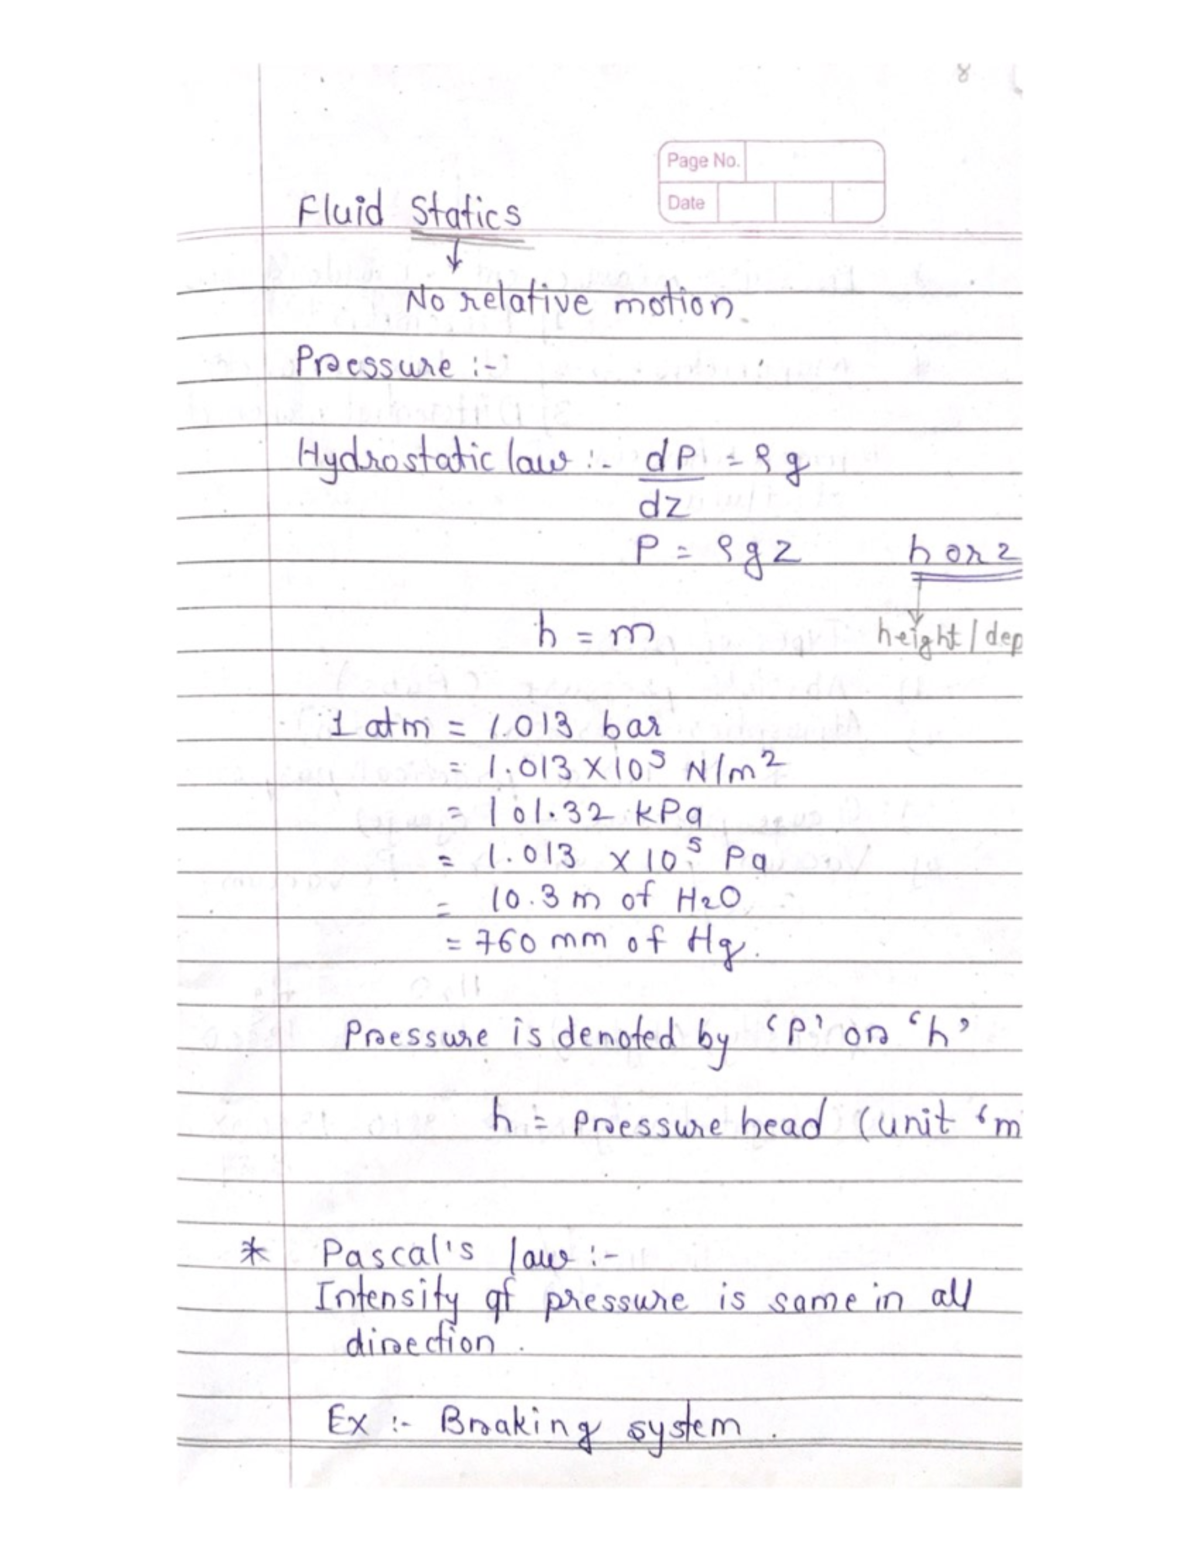 8
Page No.
Date
Fluid Statics
↓
No relative motion.
Pressure :-
Hydrostatic law :- dP/dz = ρg
P = ρgz h or z
↓
h = m height/dep
1 atm = 1.013 bar
= 1.013 × 10⁵ N/m²
= 101.32 kPa
= 1.013 × 10⁵ Pa
= 10.3 m of H₂O
= 760 mm of Hg.
Pressure is denoted by ‘P’ or ‘h’
h = Pressure head (unit ‘m
* Pascal's law :-
Intensity of pressure is same in all
direction.
Ex :- Braking system.